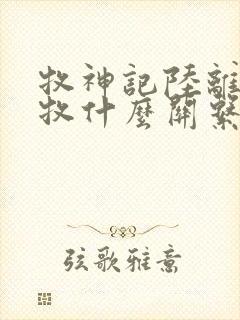 牧神記陸離
牧什麼關繫
弦歌雅意